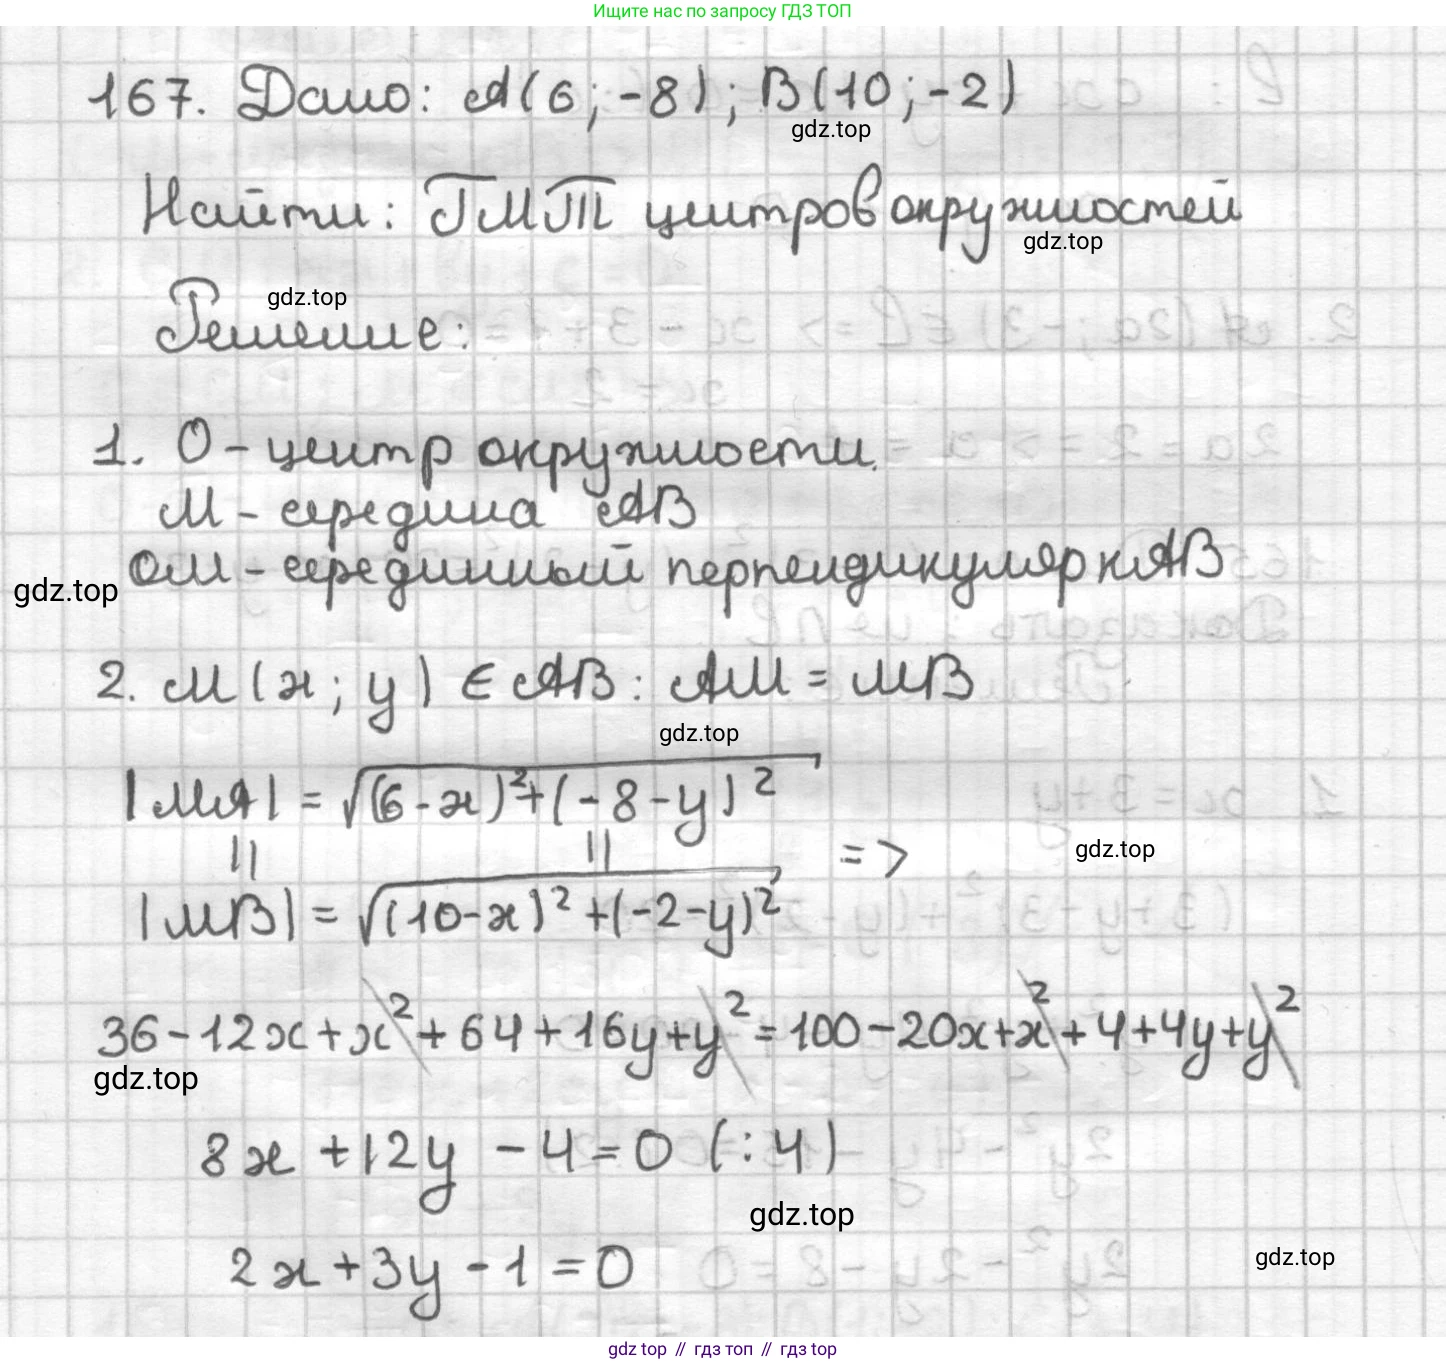 Ищите нас по запросу ГДЗ ТОП
167. Дано: A(6; -8); B(10; -2)
gdz.top
Найти: ГМТ центров окружностей
gdz.top
gdz.top
Решение:
1. О - центр окружности.
М - середина АВ
ОМ - серединный перпендикуляр к АВ
gdz.top
2. М(x; y) ∈ АВ: АМ = МВ
gdz.top
|МА| = √(6-x)²+(-8-y)²
|| || =>
gdz.top
|МВ| = √(10-x)²+(-2-y)²
36-12x+x²+64+16y+y²=100-20x+x²+4+4y+y²
gdz.top
8x+12y-4=0 (:4)
gdz.top
2x+3y-1=0
gdz.top
gdz top // гдз топ // gdz top